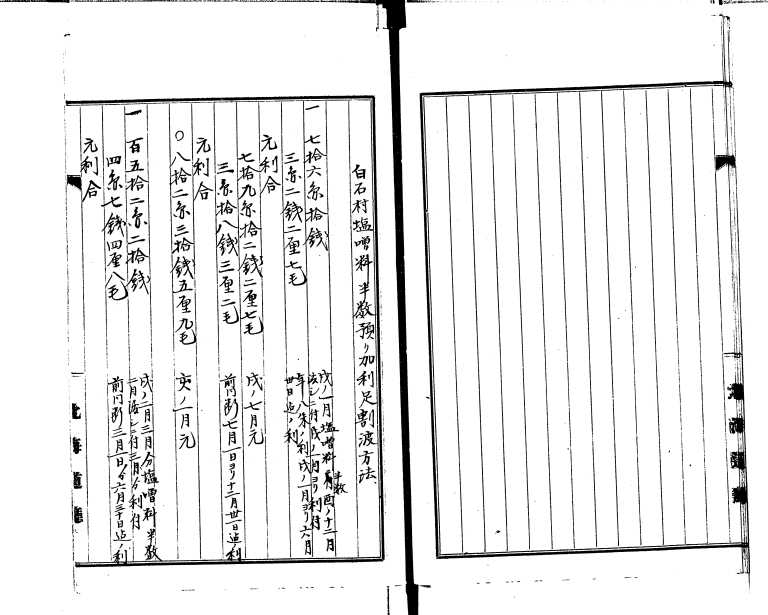 白石村塩噌料半数預リ加利足割渡方法
一 七拾六糸拾銭
戌ノ一月塩噌料半数酉ノ十二月
渡ニ付戌ノ一月ヨリ利付
年八朱ノ利戌ノ一月ヨリ六月
三糸二銭二厘七毛
卅日迄ノ利
元利合
七拾九糸拾二銭二厘七毛 戌ノ七月元
三糸拾八銭三厘二毛 前同断七月一日ヨリ十二月卅一日迄利
元利合
〇八拾二糸三拾銭五厘九毛 亥ノ一月元
一 百五拾二糸二拾銭
戌ノ二月三月分塩噌料半数
二月渡ニ付三月分利付
四糸七銭四厘八毛 前同断三月一日ヨリ六月三十日迄ノ利
元利合
北海道廳